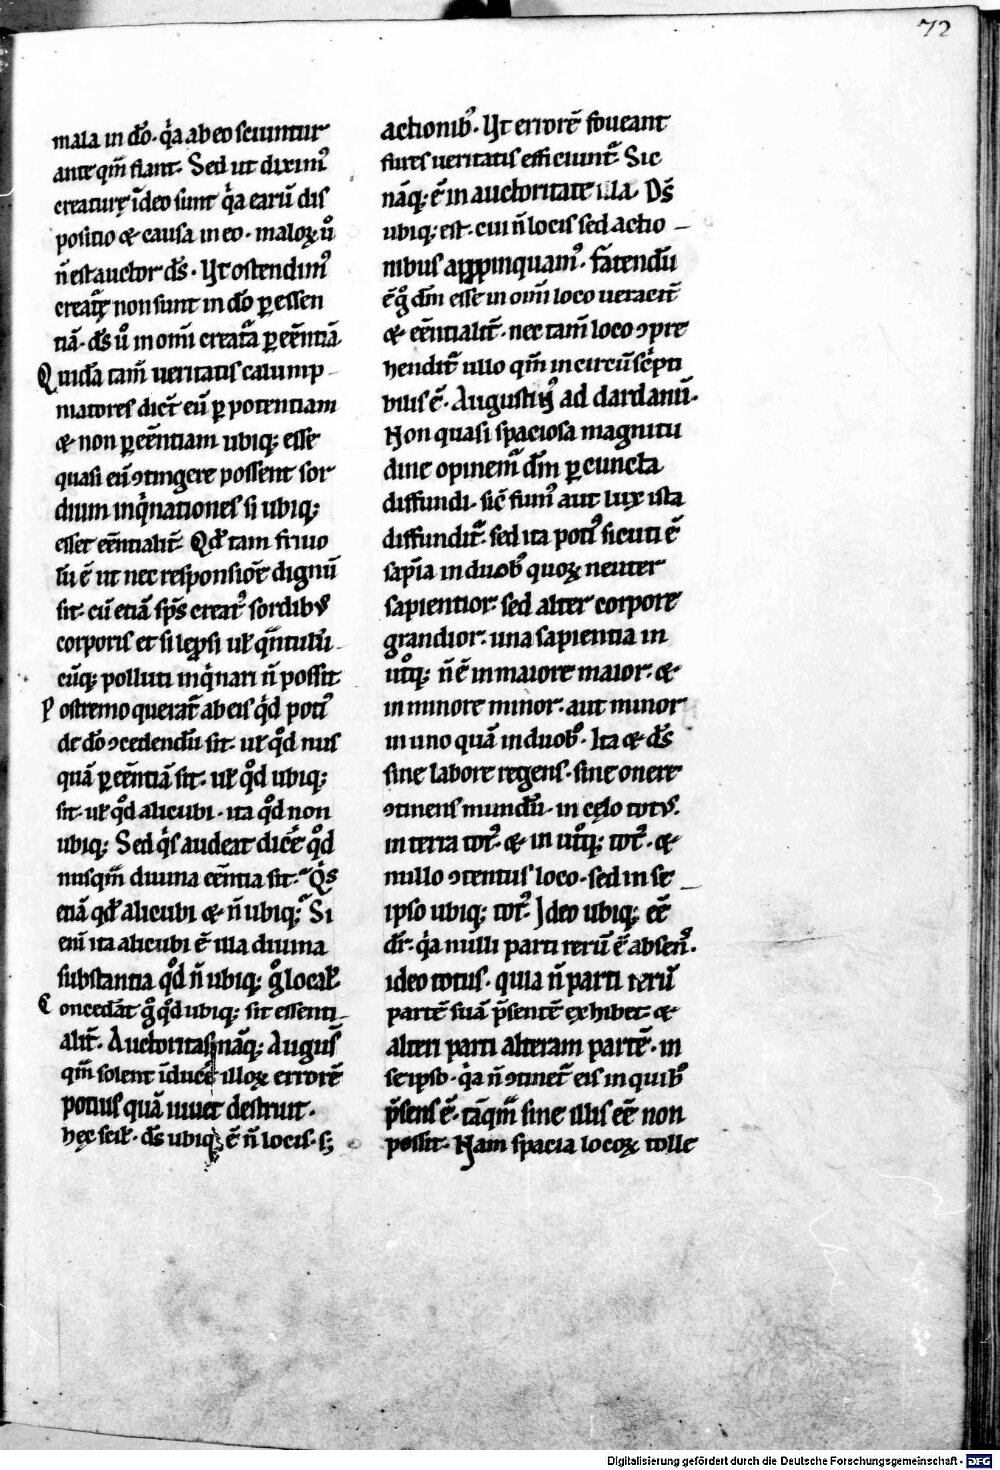 72
mala in do᷒. qͥa ab eo sciuntur
ante qm̄ fiant. Sed ut dixim᷒
creaturę īdeo sunt qͥa earū dis
positio & causa in eo. maloꝝ ū
n̄ est auctor ds̄. Ut ostendim᷒
creatᷓę non sunt in dō ꝑ essen
tiā. ds̄ ū in omī creatᷓa ꝑ eēntiā.
Quidā tam̄ ueritatis calump
niatores dict̄ eū ꝑ potentiam
& non ꝑ eēntiam ubiq; esse
quasi eū ꝯtingere possent sor
dium inqͥnationes si ubiq;
esset eēntialit̄. Qd̄ tam friuo
lū ē ut nec responsiōe dignū
sit. cū etiā sps̄ creat᷒ sordib᷒
corporis et si lepsi uł qn̄tulū
cūq; polluti inqͥnari n̄ possit.
Postremo querat̄ ab eis qͥd poti᷒
de dō ꝯcedendū sit. uł qͦd nus
quā ꝑ eēntiā sit. uł qͦd ubiq;
sit. uł qͦd alicubi. ita qͦd non
ubiq; Sed qͥs audeat dicē qͦd
nusqm̄ diuina eēntia sit. Qͥs
etiā qd̄ alicubi & n̄ ubiq; Si
enī ita alicubi ē illa diuina
substantia qͦd n̄ ubiq; gͦ localł.
Concedat̄ gͦ qͦd ubiq; sit essenti
alit̄. Auctoritas nāq; Augus̄
qm̄ solent īducē illoꝝ errorē
potius quā iuuet destruit.
hęc scił. ds̄ ubiq; ē n̄ locis. s;
actionib᷒. Ut errorē foueant
fures ueritatis efficiunt̄. Sic
nāq; ē in auctoritate illa. Ds̄
ubiq; est. cui n̄ locis sed actio
nibus appropinquam᷒. fatendū
ē gͦ dm̄ esse in omī loco ueracit̄
& eēntialit̄. nec tam̄ loco ꝯpre
hendit̄ ullo qm̄ incircūscͥpti
bilis ē. Augustin᷒ ad dardanū.
Non quasi spaciosa magnitu
dine opinem̄ dm̄ ꝑ cuncta
diffundi. sic̄ fum᷒ aut lux ista
diffundit̄. sed ita poti᷒ sicuti ē
sapīa in duob᷒ quoꝝ neuter
sapientior. sed alter corpore
grandior. una sapientia in
utͦq; n̄ ē in maiore maior. &
in minore minor. aut minor
in uno quā in duob᷒. Ita & ds̄
sine labore regens. sine onere
ꝯtinens mundū. in cęlo tot᷒.
in terra tot᷒. & in utͦq; tot᷒. &
nullo ꝯtentus loco. sed in se
ipso ubiq; tot᷒. Ideo ubiq; eē
dr̄. qͥa nulli parti rerū ē absens᷒.
ideo totus. quia n̄ parti rerū
partē suā p̄sentē exhibet. &
alteri parti alteram partē. in
seipso. qͥa n̄ ꝯtinet̄ eis in quib᷒
p̄sens ē. tāqm̄ sine illis eē non
possit. Nam spacia locoꝝ tolle
Digitalisierung gefördert durch die Deutsche Forschungsgemeinschaft - DFG